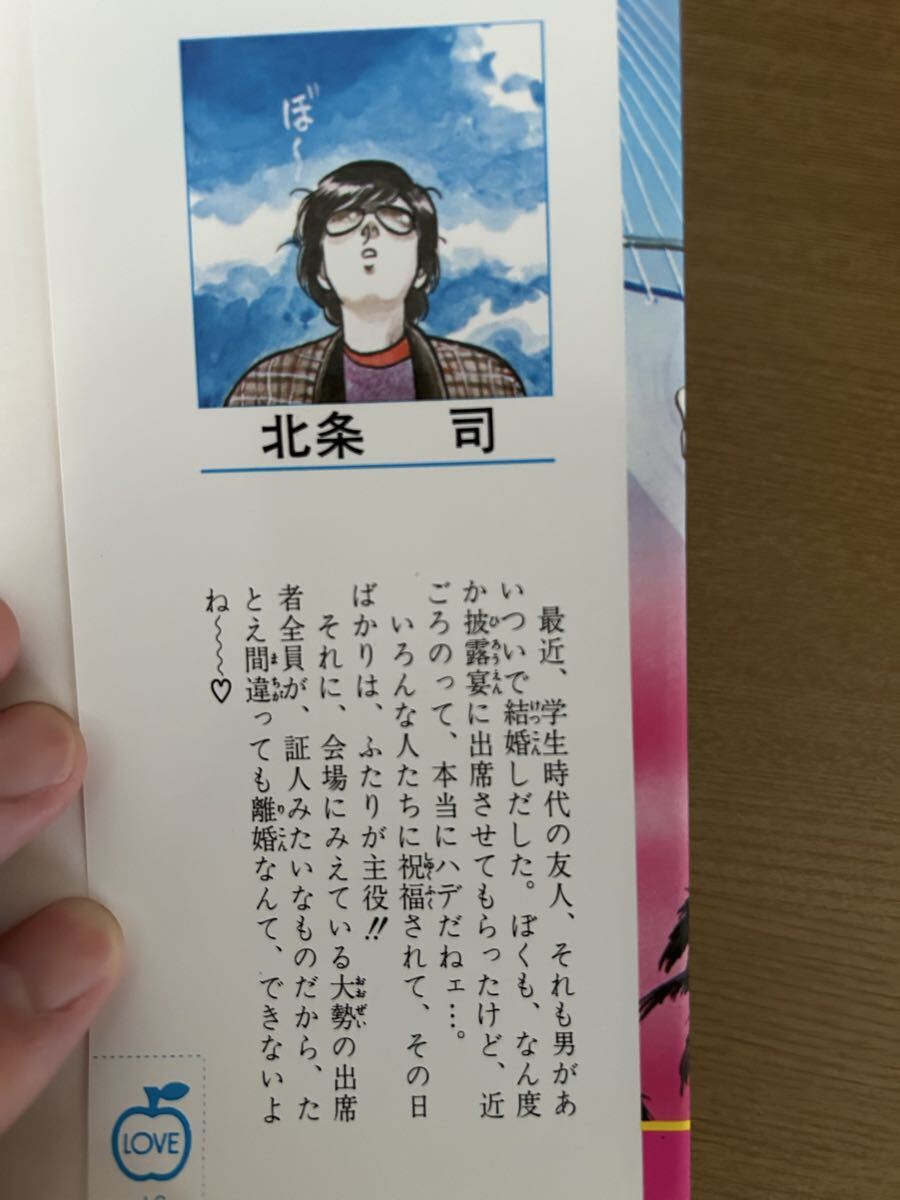 ぼ〜
北条　司
最近、学生時代の友人、それも男があ
いついで結婚しだした。ぼくも、なん度
か披露宴に出席させてもらったけど、近
ごろのって、本当にハデだねェ…。
いろんな人たちに祝福されて、その日
ばかりは、ふたりが主役!!
それに、会場にみえている大勢の出席
者全員が、証人みたいなものだから、た
とえ間違っても離婚なんて、できないよ
ね〜〜〜♡
LOVE